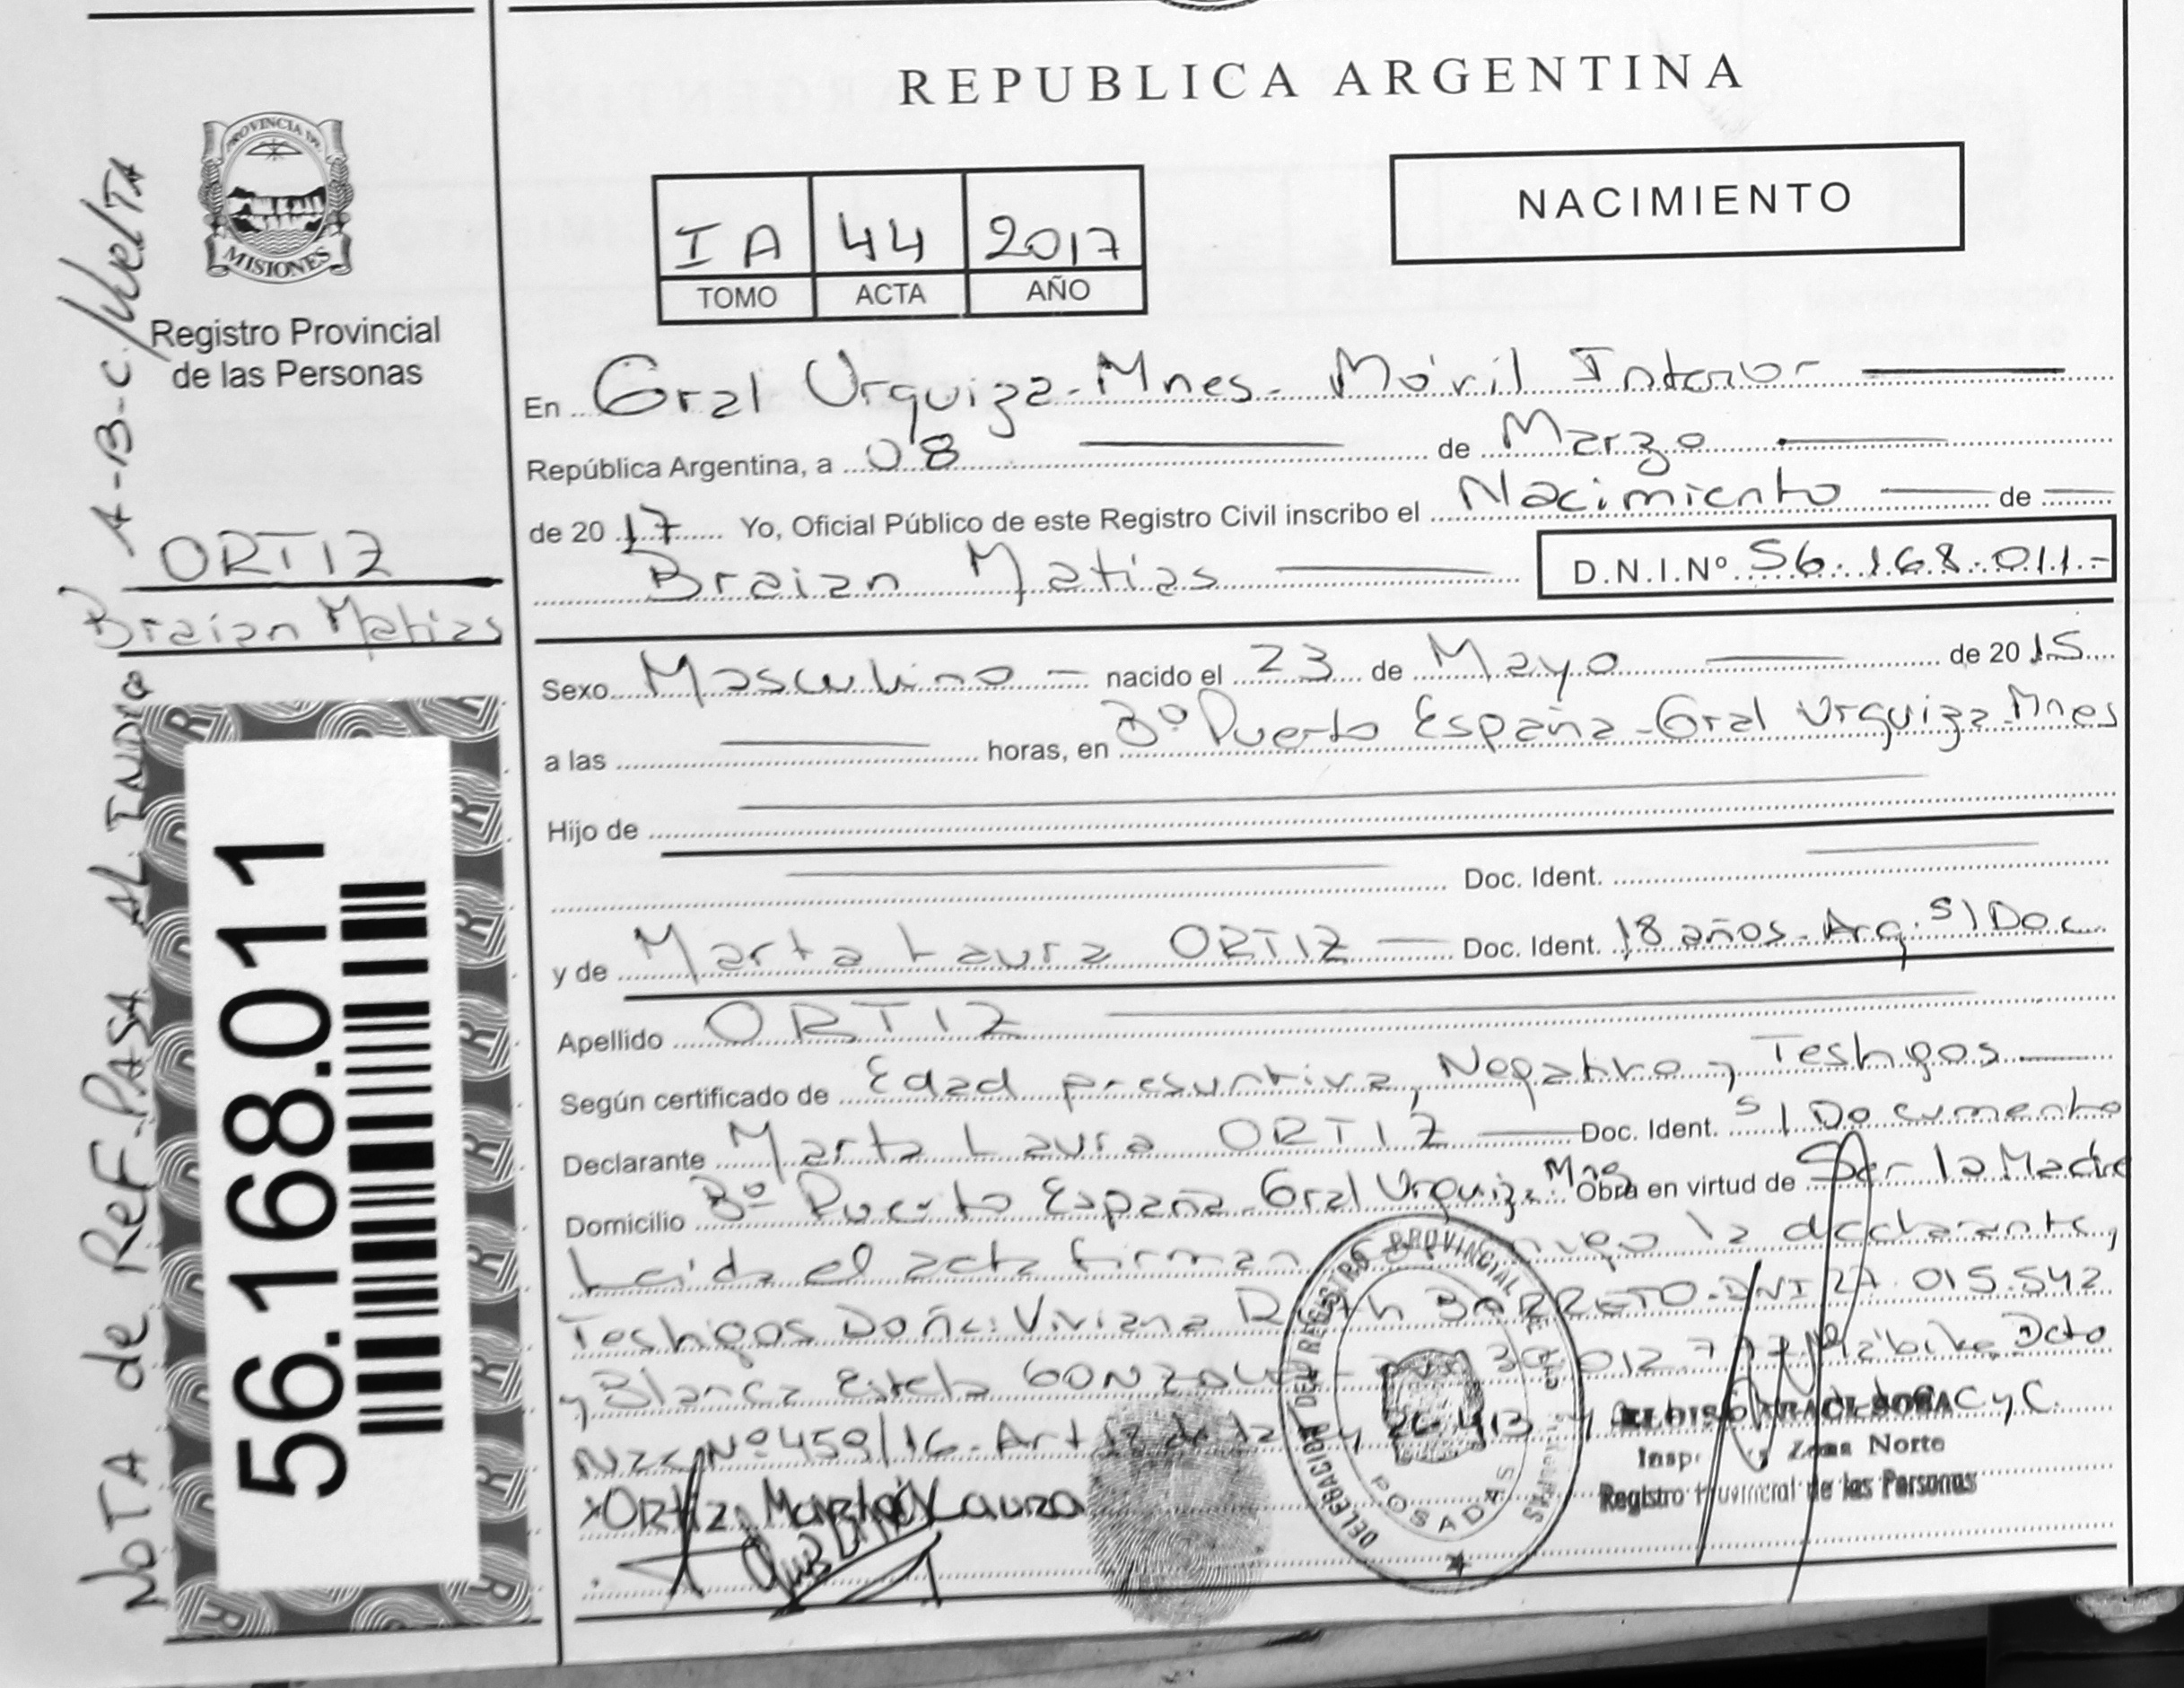 REPUBLICA ARGENTINA
PROVINCIA DE
MISIONES
Registro Provincial
de las Personas
NACIMIENTO
I A 44 2017
TOMO ACTA AÑO
En Gral Urquiza-Mnes- Móvil Interior
República Argentina, a 08 de Marzo
de 2017 Yo, Oficial Público de este Registro Civil inscribo el Nacimiento de
Braian Matias D.N.I.Nº 56.168.011.-
ORTIZ
Braian Matias
Sexo Masculino nacido el 23 de Mayo de 2015
a las horas, en Bº Puerto España-Gral Urquiza-Mnes
Hijo de
Doc. Ident.
y de Marta Laura ORTIZ Doc. Ident. 18 años-Arg. S/Doc
Apellido ORTIZ
Según certificado de Edad presuntiva, Negativo y Testigos
Declarante Marta Laura ORTIZ Doc. Ident. S/Documento
Domicilio Bº Puerto España-Gral Urquiza Mnes Obra en virtud de Ser la Madre
Leida el acta firman la declarante,
Testigos Doña: Viviana BARRETO-DNI 27.015.542
y Blanca Estela Dcto
Nac Nº 459/16-Art 26.413 y CyC.
x ORtiz Marta Laura
DELEGACION DEL REGISTRO PROVINCIAL DE LAS PERSONAS
POSADAS
Insp. Zona Norte
Registro Provincial de las Personas
56.168.011
NOTA de ReF. PASA AL INDICe A-B-C/VuelTA